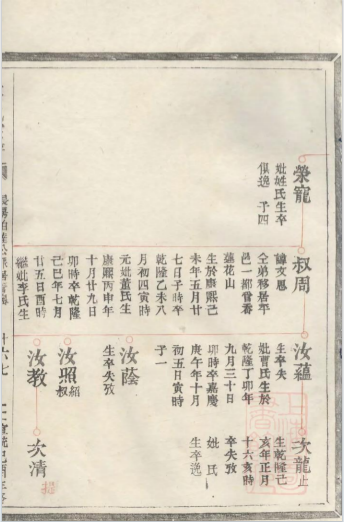 榮寵
妣姓氏生卒
俱逸 子四
叔周
諱文恩
仝弟移居平
邑一都當香
蓮花山
生於康熙己
未年五月廿
七日子時卒
乾隆乙未八
月初四寅時
元妣董氏生
康熙丙申年
十月廿九日
卯時卒乾隆
己巳年七月
廿五日酉時
繼妣李氏生
汝蘊
生卒失
妣曹氏生於
乾隆丁卯年
九月三十日
卯時卒嘉慶
庚午年十月
初五日寅時
子一
汝蔭
生卒失攷
汝照
紹叔
汝教
次龍
止
生乾隆己
亥年正月
十六亥時
卒失攷
妣 氏
生卒逸
次清